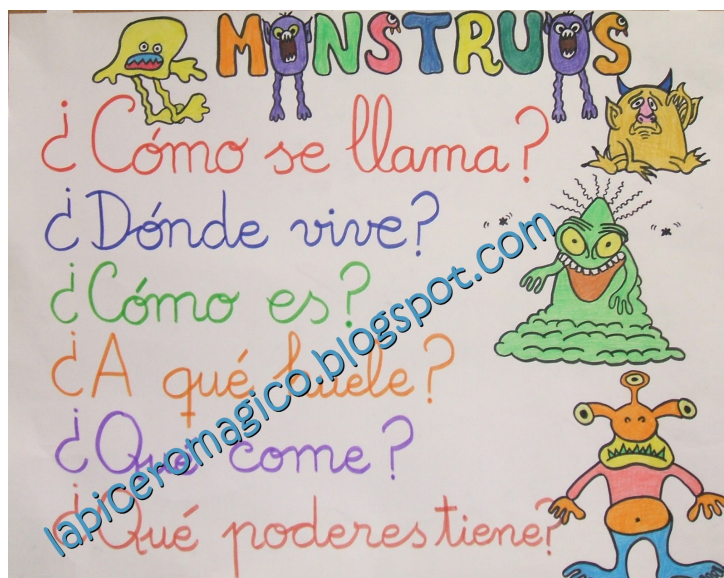 MONSTRUOS
¿Cómo se llama?
¿Dónde vive?
¿Cómo es?
¿A qué huele?
¿Qué come?
¿Qué poderes tiene?
lapiceromagico.blogspot.com